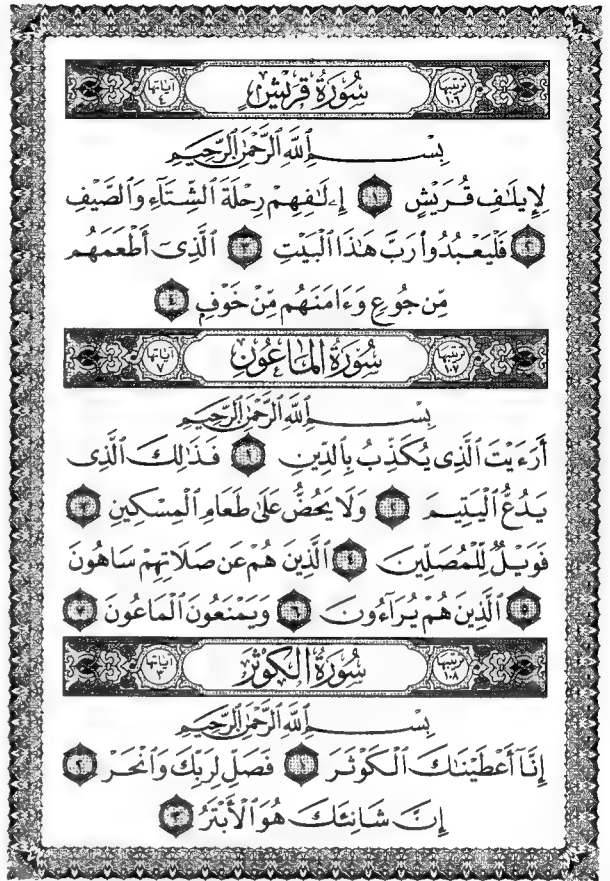 ترتيبها ١٠٦ سُورَةُ قُرَيْشٍ آياتها ٤
بِسْمِ ٱللَّهِ ٱلرَّحْمَٰنِ ٱلرَّحِيمِ
لِإِيلَٰفِ قُرَيْشٍ ١ إِۦلَٰفِهِمْ رِحْلَةَ ٱلشِّتَآءِ وَٱلصَّيْفِ
٢ فَلْيَعْبُدُوا۟ رَبَّ هَٰذَا ٱلْبَيْتِ ٣ ٱلَّذِىٓ أَطْعَمَهُم
مِّن جُوعٍ وَءَامَنَهُم مِّنْ خَوْفٍ ٤
ترتيبها ١٠٧ سُورَةُ ٱلْمَاعُونِ آياتها ٧
بِسْمِ ٱللَّهِ ٱلرَّحْمَٰنِ ٱلرَّحِيمِ
أَرَءَيْتَ ٱلَّذِى يُكَذِّبُ بِٱلدِّينِ ١ فَذَٰلِكَ ٱلَّذِى
يَدُعُّ ٱلْيَتِيمَ ٢ وَلَا يَحُضُّ عَلَىٰ طَعَامِ ٱلْمِسْكِينِ ٣
فَوَيْلٌ لِّلْمُصَلِّينَ ٤ ٱلَّذِينَ هُمْ عَن صَلَاتِهِمْ سَاهُونَ
٥ ٱلَّذِينَ هُمْ يُرَآءُونَ ٦ وَيَمْنَعُونَ ٱلْمَاعُونَ ٧
ترتيبها ١٠٨ سُورَةُ ٱلْكَوْثَرِ آياتها ٣
بِسْمِ ٱللَّهِ ٱلرَّحْمَٰنِ ٱلرَّحِيمِ
إِنَّآ أَعْطَيْنَٰكَ ٱلْكَوْثَرَ ١ فَصَلِّ لِرَبِّكَ وَٱنْحَرْ ٢
إِنَّ شَانِئَكَ هُوَ ٱلْأَبْتَرُ ٣